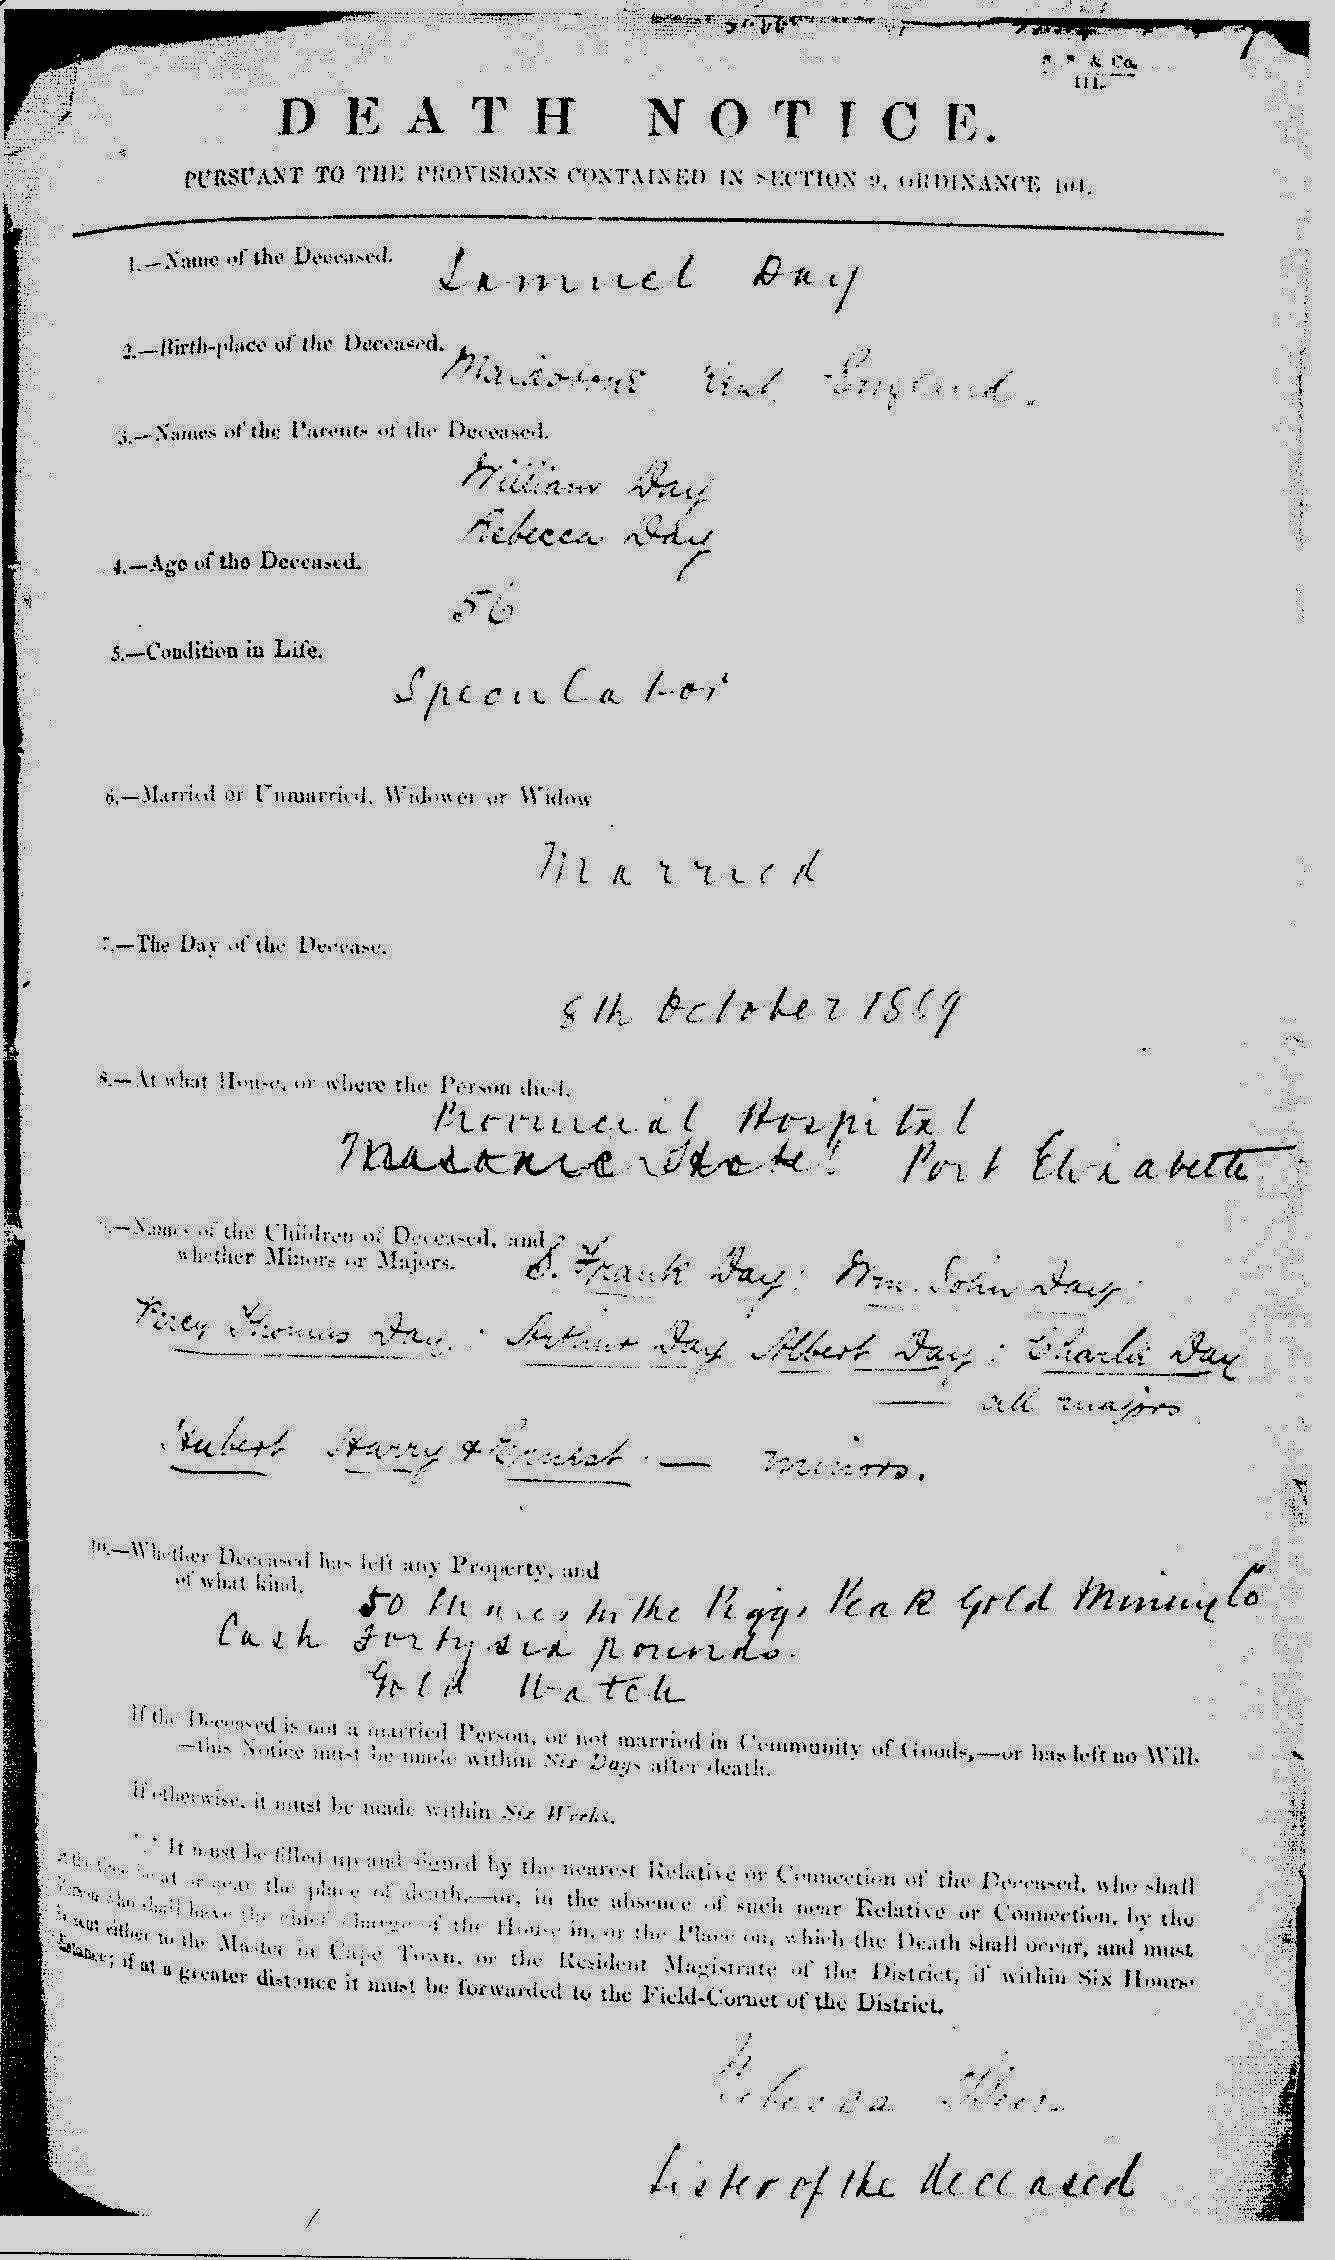 & Co.
111.
DEATH NOTICE.
PURSUANT TO THE PROVISIONS CONTAINED IN SECTION 9, ORDINANCE 104.
1.—Name of the Deceased.
Samuel Day
2.—Birth-place of the Deceased.
Maidstone Kent England.
3.—Names of the Parents of the Deceased.
William Day
Rebecca Day
4.—Age of the Deceased.
56
5.—Condition in Life.
Speculator
6.—Married or Unmarried, Widower or Widow
Married
7.—The Day of the Decease.
8th October 1889
8.—At what House, or where the Person died.
Provincial Hospital
Masonic Hotel Port Elizabeth
9.—Names of the Children of Deceased, and
whether Minors or Majors.
S. Frank Day: Wm. John Day:
Percy Thomas Day: Arthur Day Albert Day: Charlie Day
— all majors.
Hubert Harry & Ernest — minors.
10.—Whether Deceased has left any Property, and
of what kind.
50 Shares in the Piggs Peak Gold Mining Co
Cash forty six pounds.
Gold Watch
If the Deceased is not a married Person, or not married in Community of Goods,—or has left no Will,
—this Notice must be made within Six Days after death.
If otherwise, it must be made within Six Weeks.
It must be filled up and signed by the nearest Relative or Connection of the Deceased, who shall
at the time be at or near the place of death,—or, in the absence of such near Relative or Connection, by the
Person who shall have the chief charge of the House in, or the Place on, which the Death shall occur, and must
be sent either to the Master in Cape Town, or the Resident Magistrate of the District, if within Six Hours'
distance; if at a greater distance it must be forwarded to the Field-Cornet of the District.
Rebecca
Sister of the Deceased